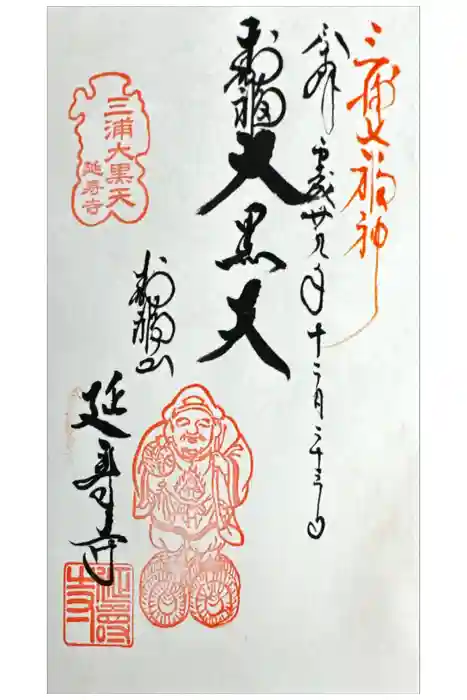 三浦七福神
奉拝 平成廿九年十二月二十三日
寿福大黒天
寿福山
延寿寺
三浦大黒天
延寿寺
延寿
寺